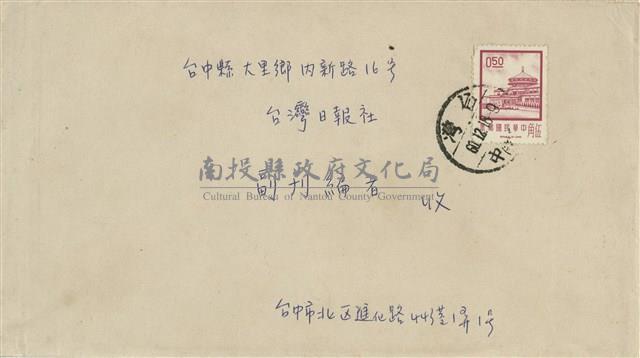 台中縣大里鄉內新路16号
台灣日報社
副刊編者
收
台中市北区進化路44巷1弄1号
0.50
中華民國郵票
伍角
台灣
台中
南投縣政府文化局
Cultural Bureau of Nantou County Government